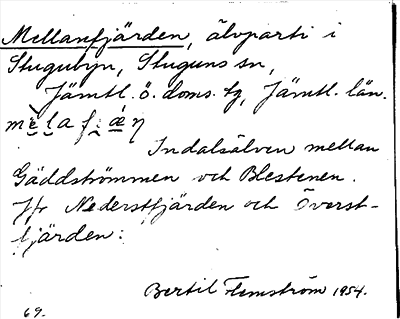 Mellanfjärden, älvparti i
Stugubyn, Stuguns sn,
Jämtl. ö. doms. sg, Jämtl. län.
Indalsälven mellan
Gäddströmmen och Blestenen.
Jfr Nederstfjärden och Överst-
fjärden.
Bertil Flemström 1954.
69.